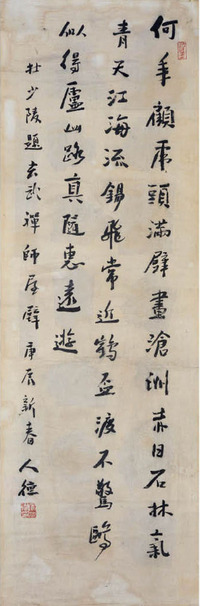 何年顧虎頭滿壁畫滄洲赤日石林氣
青天江海流錫飛常近鶴盃渡不驚鷗
似得廬山路真隨惠遠遊
杜少陵題玄武禪師屋壁庚辰新春人德